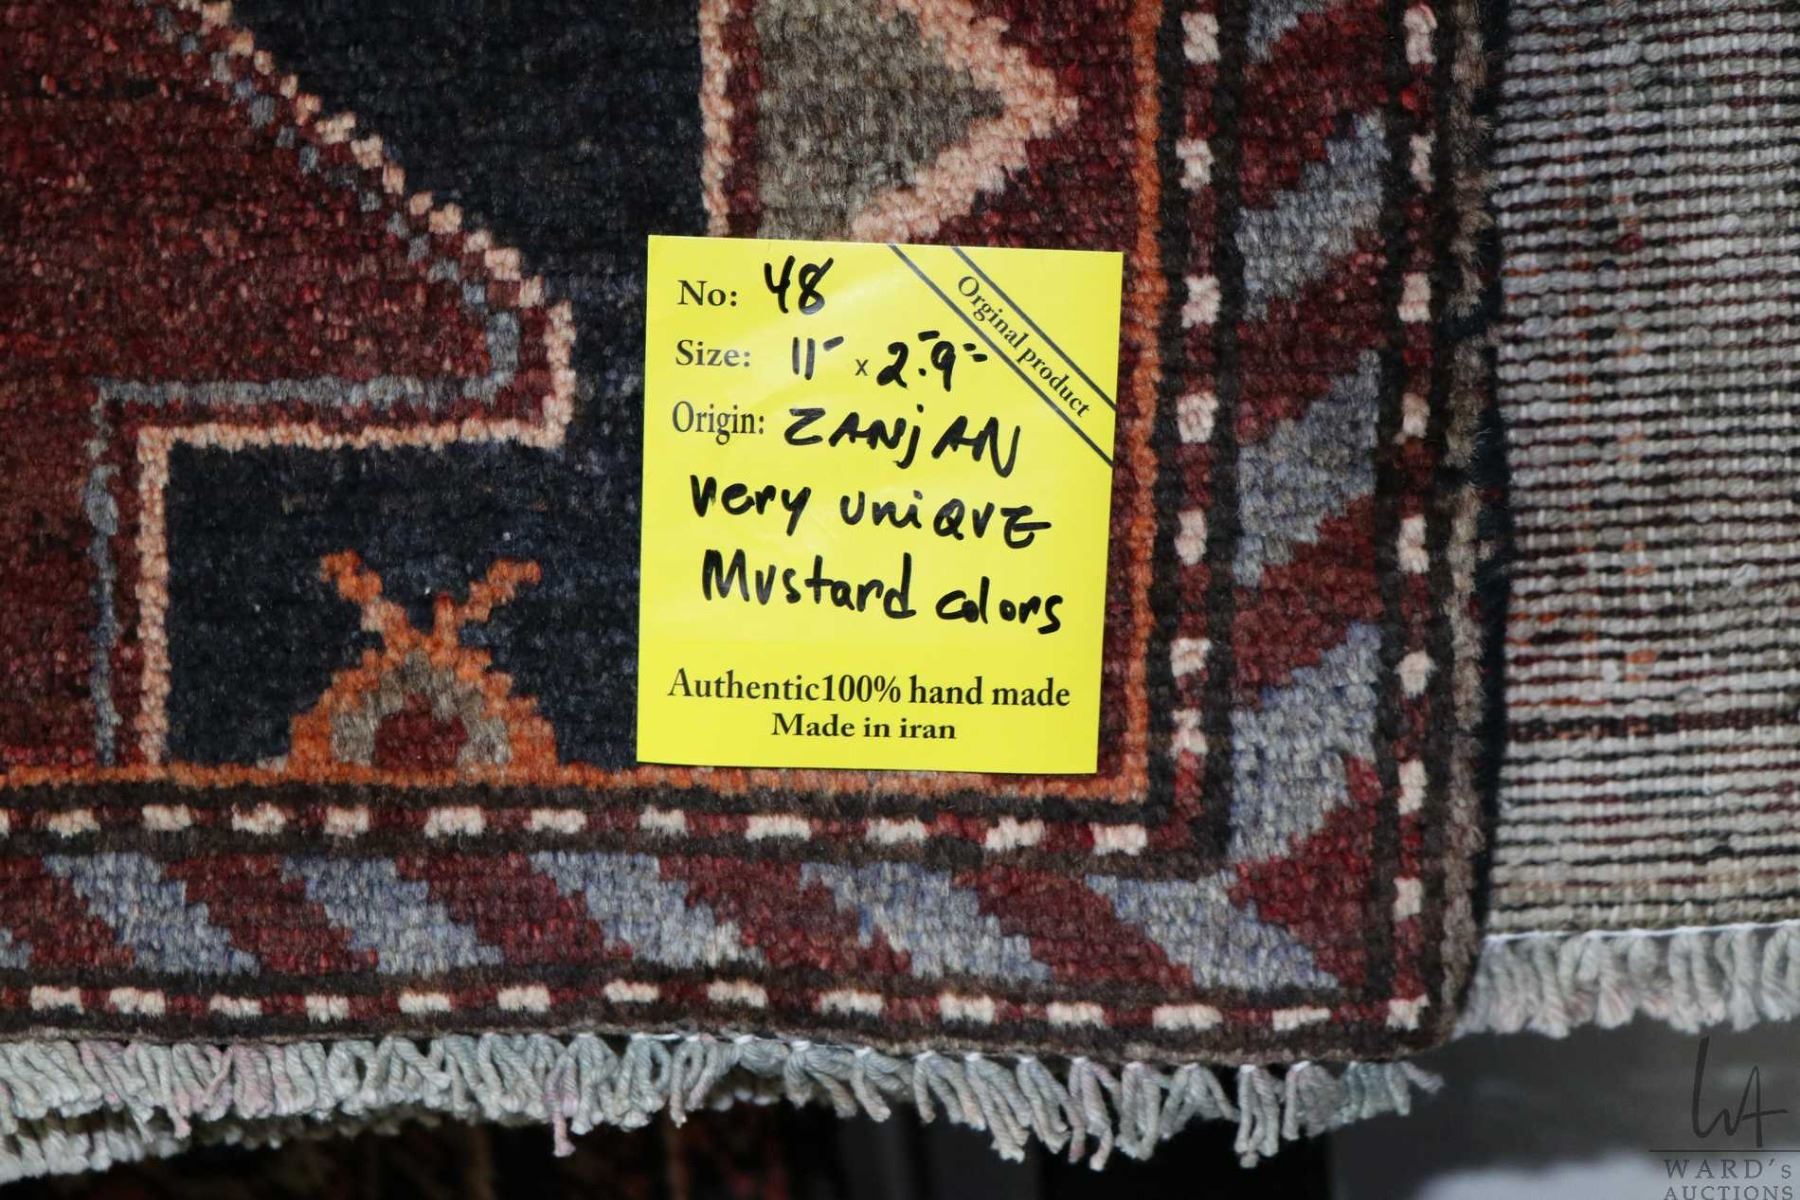 No: 48
Orginal product
Size: 11' x 2'.9''
Origin: ZANjAN
very uniQUE
Mustard colors
Authentic100% hand made
Made in iran
WA
WARD's
AUCTIONS